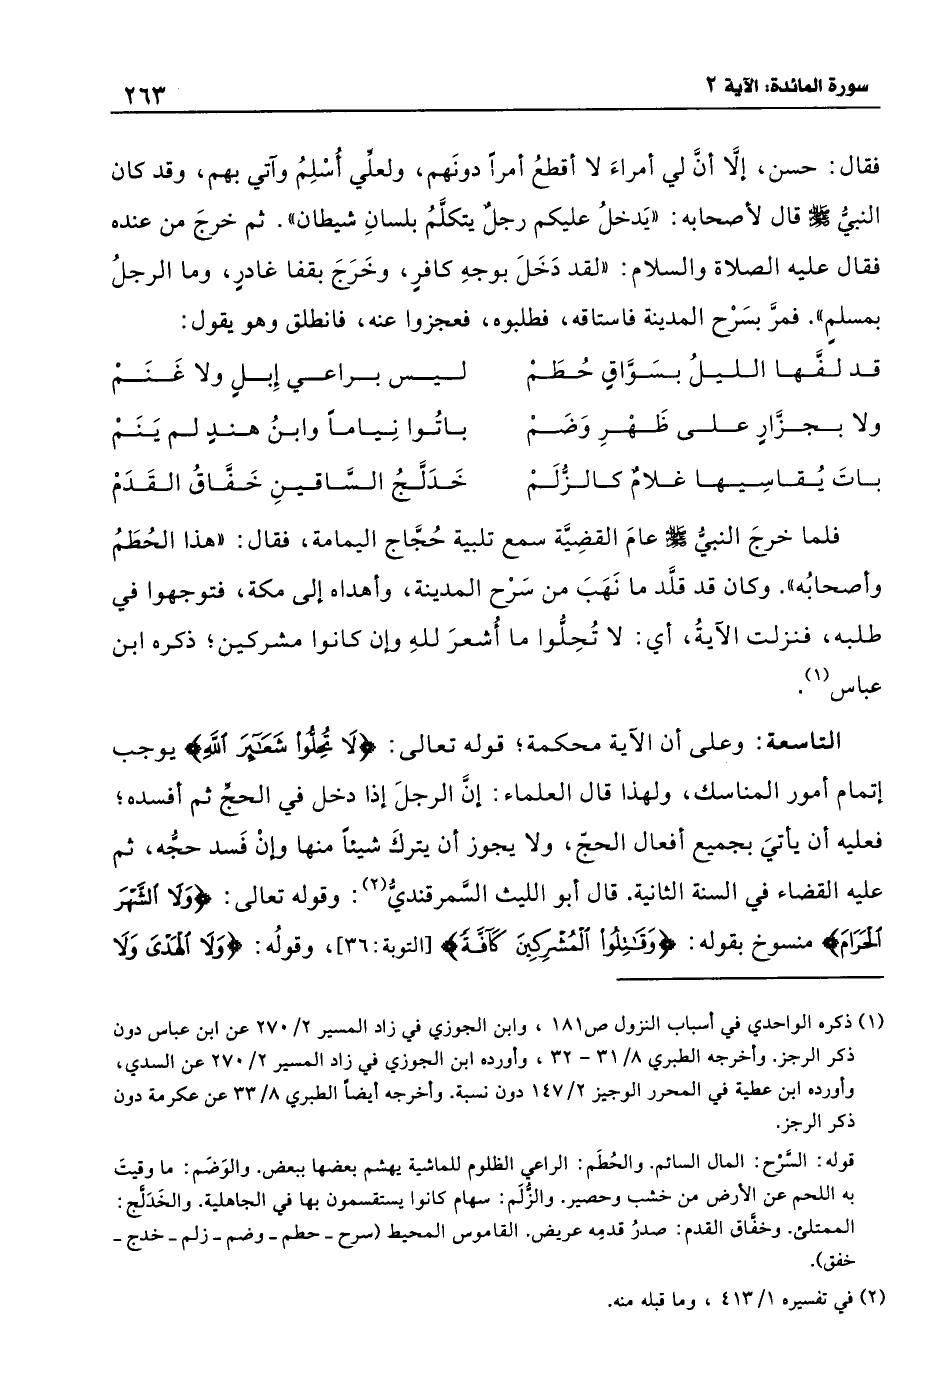 سورة المائدة: الآية ٢ ٢٦٣
فقال: حسن، إلَّا أنَّ لي أمراءَ لا أقطعُ أمراً دونَهم، ولعلِّي أُسْلِمُ وآتي بهم، وقد كان
النبيُّ ﷺ قال لأصحابه: «يَدخلُ عليكم رجلٌ يتكلَّمُ بلسانِ شيطان». ثم خرجَ من عنده
فقال عليه الصلاة والسلام: «لقد دَخَلَ بوجهِ كافرٍ، وخَرَجَ بقفا غادرٍ، وما الرجلُ
بمسلمٍ». فمرَّ بسَرْح المدينة فاستاقه، فطلبوه، فعجزوا عنه، فانطلق وهو يقول:
قد لفَّها الليلُ بسَوَّاقٍ حُطَمْ ليس براعي إبلٍ ولا غَنَمْ
ولا بجزَّارٍ على ظَهْرِ وَضَمْ باتُوا نِياماً وابنُ هندٍ لم يَنَمْ
باتَ يُقاسِيها غلامٌ كالزُّلَمْ خَدَلَّجُ السَّاقينِ خَفَّاقُ القَدَمْ
فلما خرجَ النبيُّ ﷺ عامَ القضِيَّة سمع تلبية حُجَّاج اليمامة، فقال: «هذا الحُطَمُ
وأصحابُه». وكان قد قلَّد ما نَهَبَ من سَرْح المدينة، وأهداه إلى مكة، فتوجهوا في
طلبه، فنزلت الآيةُ، أي: لا تُحِلُّوا ما أُشعرَ للهِ وإن كانوا مشركين؛ ذكره ابن
عباس(١).
التاسعة: وعلى أن الآية محكمة؛ قوله تعالى: ﴿لَا تُحِلُّوا۟ شَعَـٰٓئِرَ ٱللَّهِ﴾ يوجب
إتمام أمور المناسك، ولهذا قال العلماء: إنَّ الرجلَ إذا دخل في الحجِّ ثم أفسده؛
فعليه أن يأتيَ بجميع أفعال الحجّ، ولا يجوز أن يتركَ شيئاً منها وإنْ فَسد حجُّه، ثم
عليه القضاء في السنة الثانية. قال أبو الليث السَّمرقنديُّ(٢): وقوله تعالى: ﴿وَلَا ٱلشَّهْرَ
ٱلْحَرَامَ﴾ منسوخ بقوله: ﴿وَقَـٰتِلُوا۟ ٱلْمُشْرِكِينَ كَآفَّةً﴾ [التوبة:٣٦]، وقولُه: ﴿وَلَا ٱلْهَدْىَ وَلَا
(١) ذكره الواحدي في أسباب النزول ص١٨١ ، وابن الجوزي في زاد المسير ٢/ ٢٧٠ عن ابن عباس دون
ذكر الرجز. وأخرجه الطبري ٨/ ٣١ – ٣٢ ، وأورده ابن الجوزي في زاد المسير ٢/ ٢٧٠ عن السدي،
وأورده ابن عطية في المحرر الوجيز ٢/ ١٤٧ دون نسبة. وأخرجه أيضاً الطبري ٨/ ٣٣ عن عكرمة دون
ذكر الرجز.
قوله: السَّرْح: المال السائم. والحُطَم: الراعي الظلوم للماشية يهشم بعضها ببعض. والوَضَم: ما وقيتَ
به اللحم عن الأرض من خشب وحصير. والزُّلَم: سهام كانوا يستقسمون بها في الجاهلية. والخَدَلَّج:
الممتلئ. وخفَّاق القدم: صدرُ قدمِه عريض. القاموس المحيط (سرح ـ حطم ـ وضم ـ زلم ـ خدج ـ
خفق).
(٢) في تفسيره ١/ ٤١٣ ، وما قبله منه.